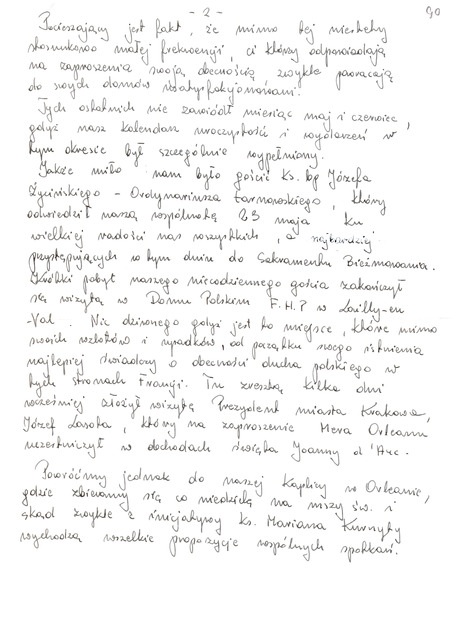 - 2 -
90
Pocieszający jest fakt, że mimo tej niestety
stosunkowo małej frekwencji, ci którzy odpowiadają
na zaproszenia swoją obecnością, zwykle powracają
do swych domów usatysfakcjonowani.
Tych ostatnich nie zawiódł miesiąc maj i czerwiec,
gdyż nasz kalendarz uroczystości i wydarzeń w
tym okresie był szczególnie wypełniony.
Jakże miło nam było gościć ks. bp Józefa
Życińskiego - Ordynariusza tarnowskiego, który
odwiedził naszą wspólnotę 23 maja ku
wielkiej radości nas wszystkich, a najbardziej
przystępujących w tym dniu do Sakramentu Bierzmowania.
Krótki pobyt naszego niecodziennego gościa zakończył
się wizytą w Domu Polskim F.H.P w Lailly-en
-Val. Nic dziwnego gdyż jest to miejsce, które mimo
swoich wzlotów i upadków, od początku swego istnienia
najlepiej świadczy o obecności ducha polskiego w
tych stronach Francji. Tu zresztą kilka dni
wcześniej złożył wizytę Prezydent miasta Krakowa,
Józef Lasota, który na zaproszenie Mera Orleanu
uczestniczył w obchodach święta Joanny d'Arc.
Powróćmy jednak do naszej Kaplicy w Orleanie,
gdzie zbieramy się co niedzielę na mszy św. i
skąd zwykle z inicjatywy ks. Mariana Kurnyty
wychodzą wszelkie propozycje wspólnych spotkań.